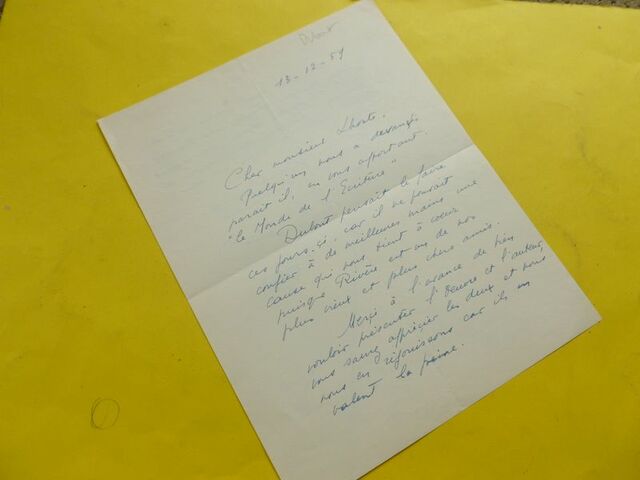 13-12-59
Cher monsieur Lhoste.
Quelqu'un nous a devancés
parait il, en vous apportant
"le Monde de l'Ecriture"
Dubout pensait le faire
ces jours-çi, car il ne pouvait
confier à de meilleures mains une
cause qui nous tient à coeur
puisque Rivère est un de nos
plus vieux et plus chers amis.
Merçi à l'avance de bien
vouloir présenter l'Oeuvre et l'auteur,
vous saurez apprécier les deux et nous
nous en réjouissons car ils en
valent la peine.